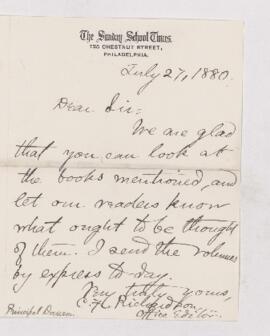 The Sunday School Times.
725 CHESTNUT STREET,
PHILADELPHIA.
July 27, 1880.
Dear Sir:
We are glad
that you can look at
the books mentioned, and
let our readers know
what ought to be thought
of them. I send the volumes
by express to-day.
Very truly yours,
C. F. Richardson,
Office Editor.
Principal Dawson.